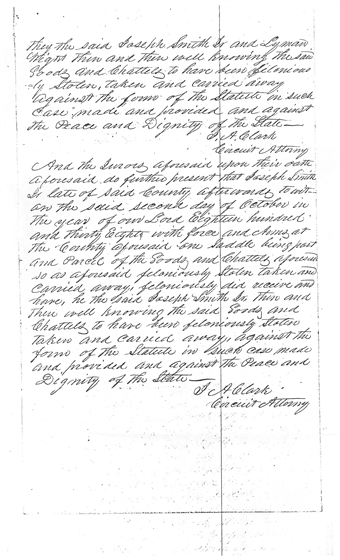 they the said Joseph Smith Jr and Lyman
Wight then and then well knowing the said
Goods and Chattels to have been felonious
ly Stolen, taken and carried away
against the form of the Statute in such
case made and provided and against
the Peace and Dignity of the State—
J A. Clark
Circuit Attorny
And the Jurors aforesaid upon their oath
aforesaid do further present that Joseph Smith
Jr late of said County afterwards to wit on
on the said second day of October in
the year of our Lord Eighteen hundred
and thirty Eight with force and Arms at
the County aforesaid one Saddle being part
and Parcel of the Goods and Chattels aforesaid
so as aforesaid feloniously Stolen taken and
carried away, feloniously did receive and
have, he the said Joseph Smith Jr, then and
then well knowing the said Goods and
Chattels to have been feloniously Stolen
taken and carried away, against the
form of the Statute in such case made
and provided and against the Peace and
Dignity of the State—
J A. Clark
Circuit Attorny